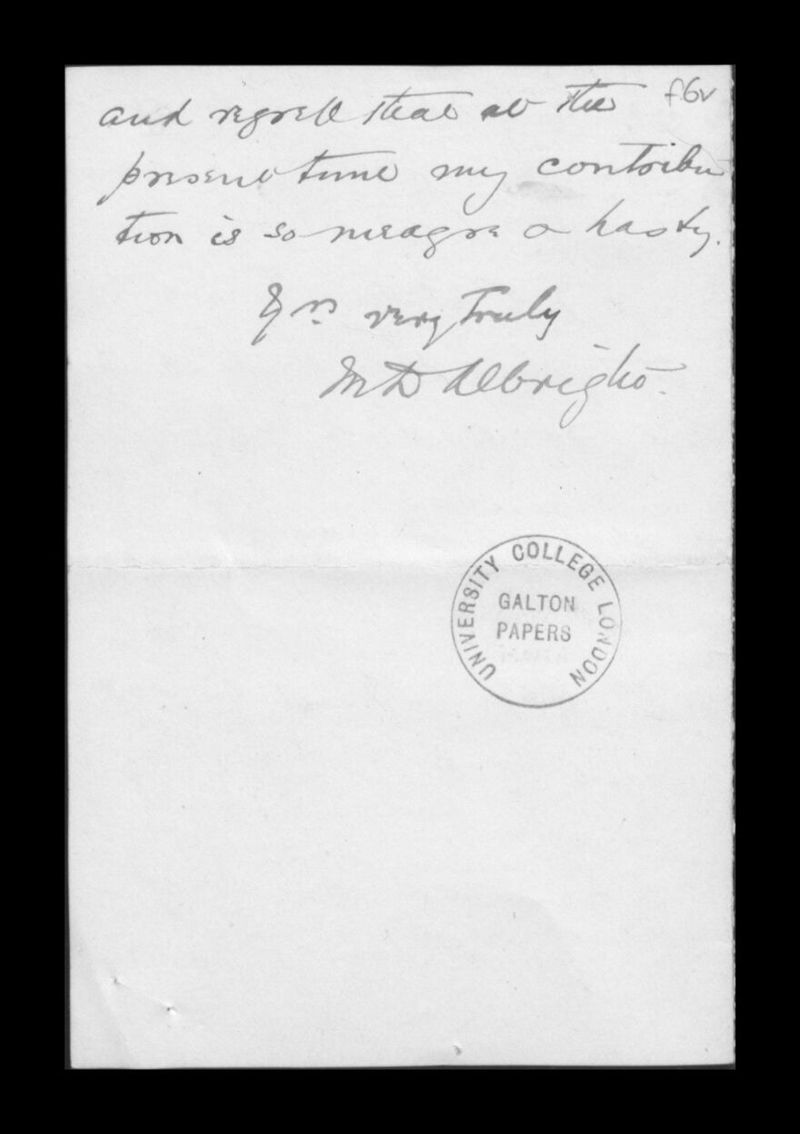 f6v
and regrett that at the
present time my contribu
tion is so meagre & hasty.
Yrs. very truly
M D Albright.
UNIVERSITY COLLEGE LONDON
GALTON
PAPERS